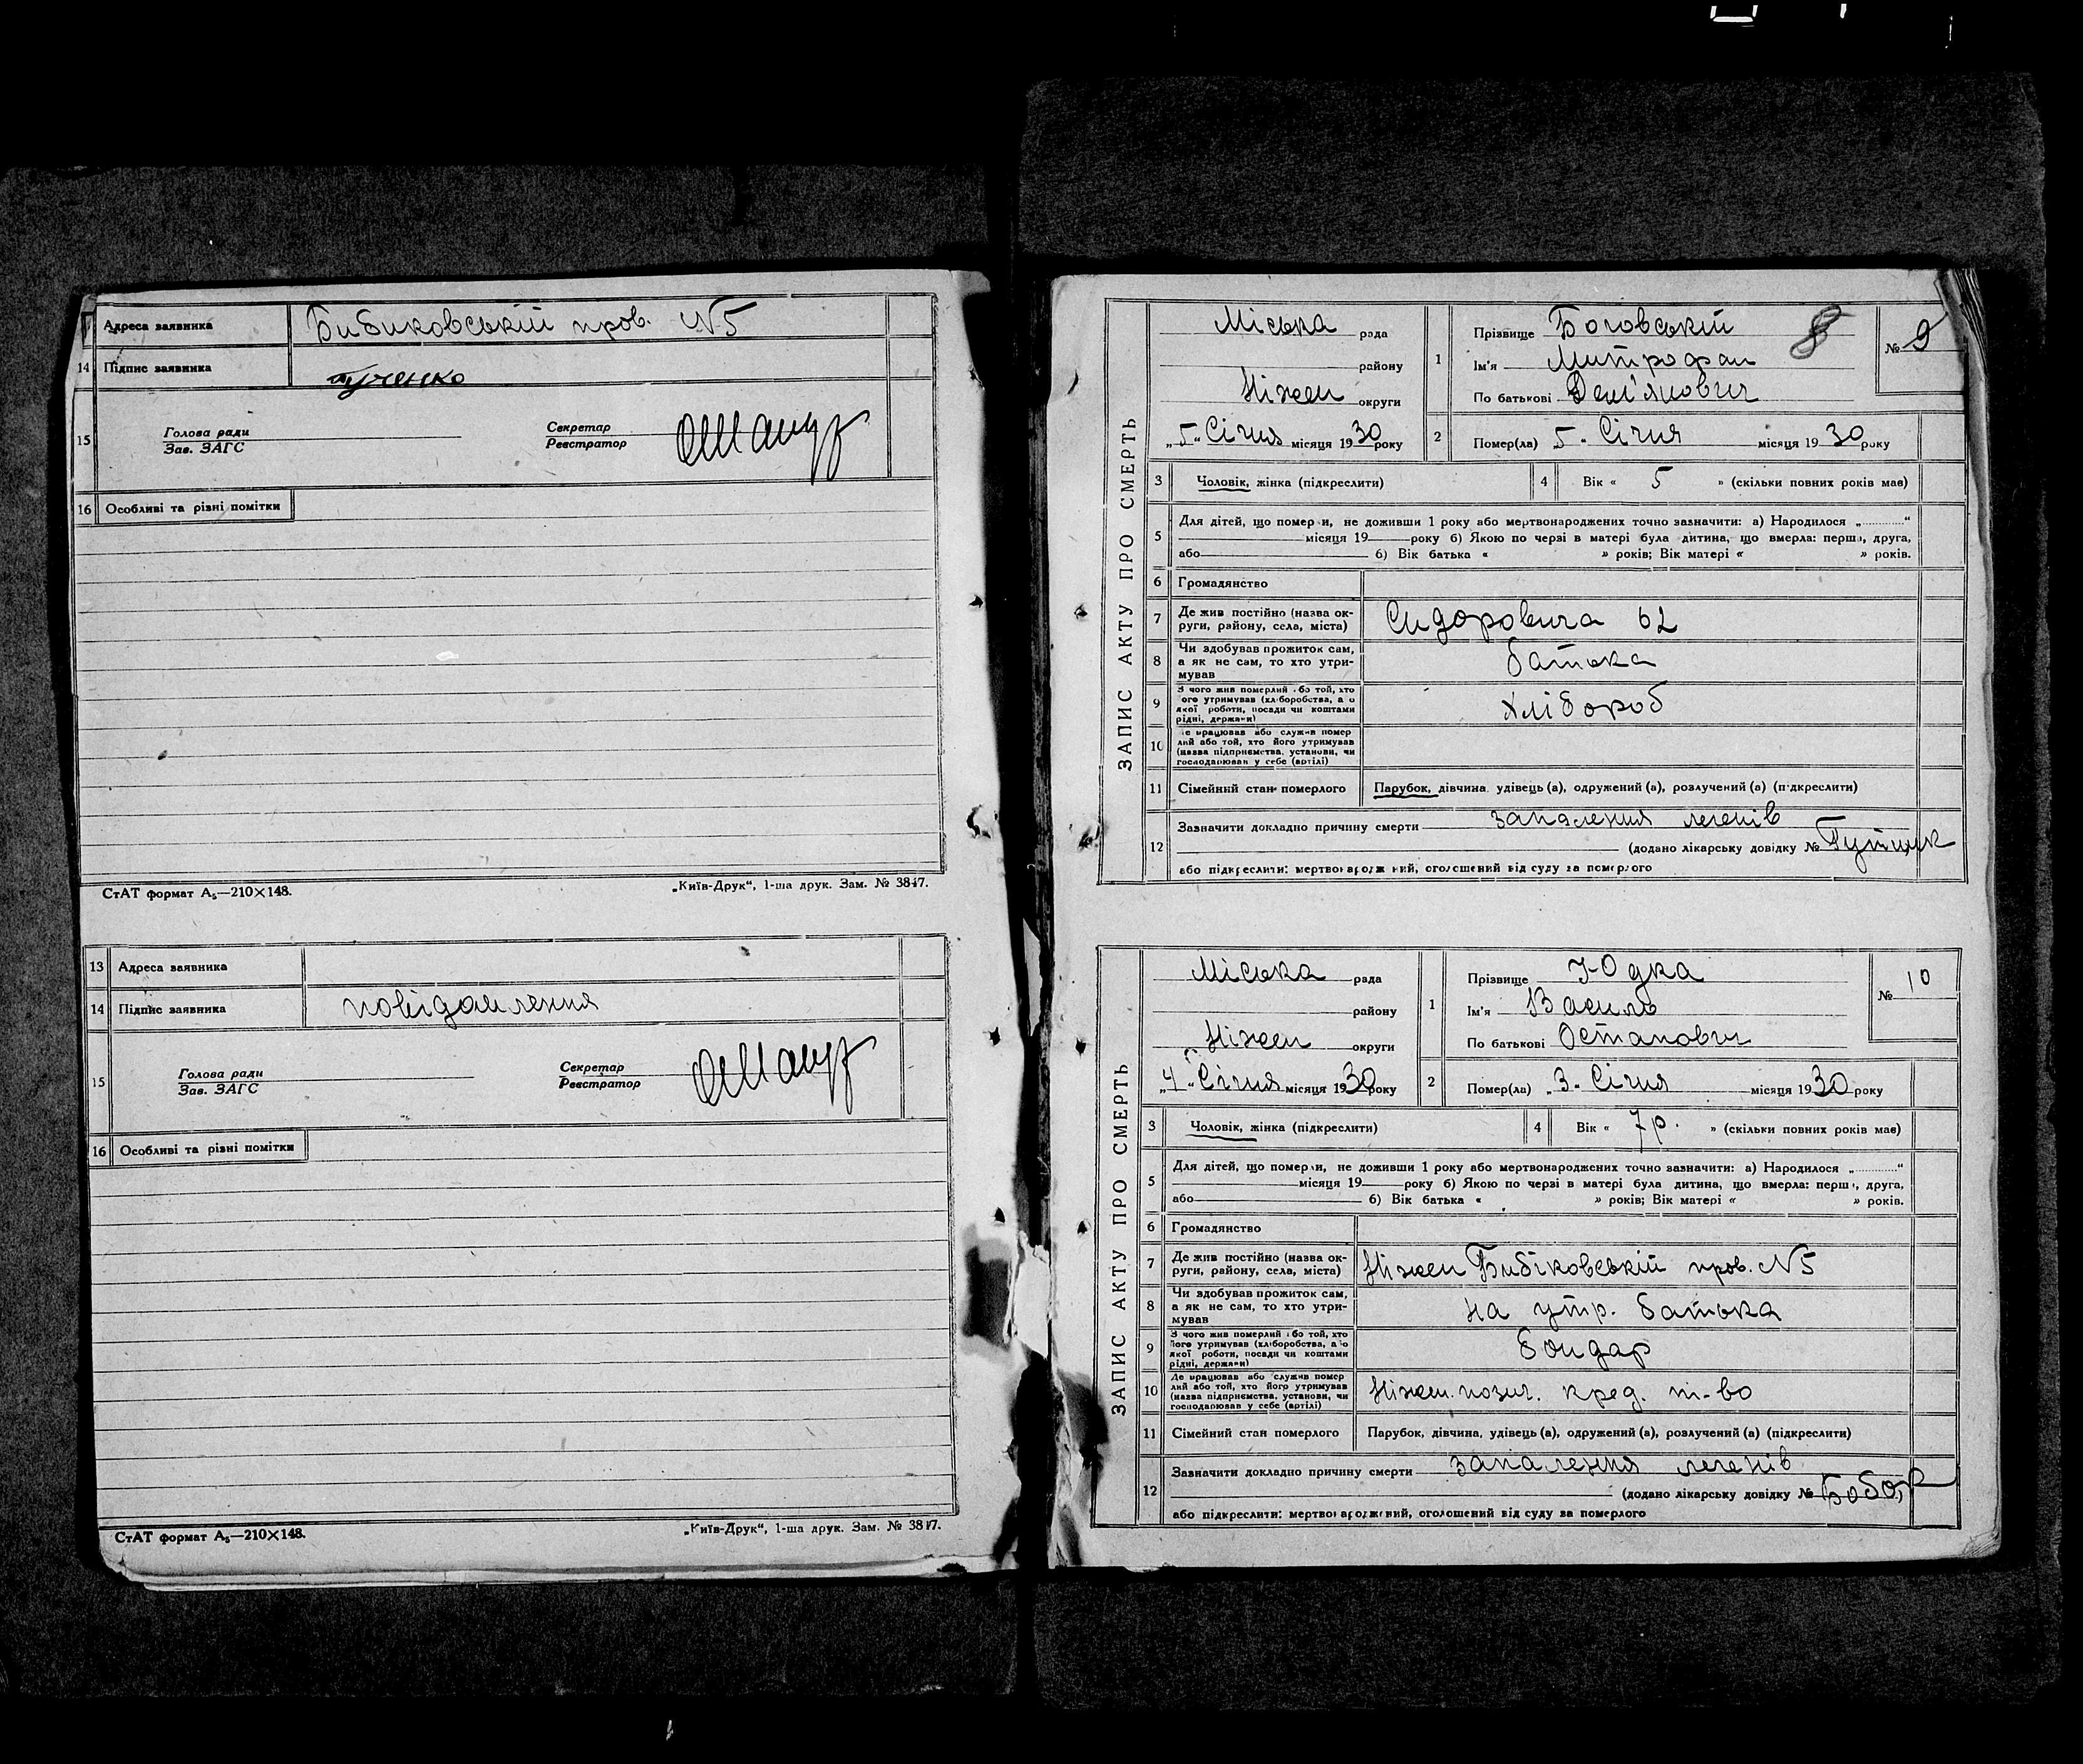 Адреса заявника Бибиковській пров. №5
14 Підпис заявника
15 Голова ради Секретар
Зав. ЗАГС Реєстратор
16 Особливі та різні помітки
СтАТ формат А₅—210×148. „Київ-Друк“, 1-ша друк. Зам. № 3847.
13 Адреса заявника
14 Підпис заявника повідомлення
15 Голова ради Секретар
Зав. ЗАГС Реєстратор
16 Особливі та різні помітки
СтАТ формат А₅—210×148. „Київ-Друк“, 1-ша друк. Зам. № 3847.
ЗАПИС АКТУ ПРО СМЕРТЬ
Міська рада
району
Ніжен округи
„5“ Січня місяця 1930 року
1 Прізвище Боговській 8
Ім'я Митрофан
По батькові Дем'янович
№ 9
2 Помер(ла) 5 „ Січня місяця 1930 року
3 Чоловік, жінка (підкреслити) 4 Вік « 5 » (скільки повних років мав)
5 Для дітей, що померли, не доживши 1 року або мертвонароджених точно зазначити: а) Народилося „............“
місяця 19 року б) Якою по черзі в матері була дитина, що вмерла: перша, друга,
або б) Вік батька « » років; Вік матері « » років.
6 Громадянство
7 Де жив постійно (назва ок-
руги, району, села, міста) Сидоровича 62
8 Чи здобував прожиток сам,
а як не сам, то хто утри-
мував батька
9 З чого жив померлий або той, хто
його утримував (хліборобства, або
якої роботи, посади чи коштами
рідні, держави) хлібороб
10 Де працював або служив помер
лий або той, хто його утримував
(назва підприємства, установи, чи
господарював у себе (артілі)
11 Сімейний стан померлого Парубок, дівчина, удівець (а), одружений (а), розлучений (а) (підкреслити)
12 Зазначити докладно причину смерти запалення легенів
(додано лікарську довідку №
або підкреслити: мертвонароджений, оголошений від суду за померлого
ЗАПИС АКТУ ПРО СМЕРТЬ
Міська рада
району
Ніжен округи
„4“ Січня місяця 1930 року
1 Прізвище Юдка
Ім'я Василь
По батькові Остапович
№ 10
2 Помер(ла) „3„ Січня місяця 1930 року
3 Чоловік, жінка (підкреслити) 4 Вік « 7 р. » (скільки повних років мав)
5 Для дітей, що померли, не доживши 1 року або мертвонароджених точно зазначити: а) Народилося „............“
місяця 19 року б) Якою по черзі в матері була дитина, що вмерла: перша, друга,
або б) Вік батька « » років; Вік матері « » років.
6 Громадянство
7 Де жив постійно (назва ок-
руги, району, села, міста) Ніжен Бибіковській пров. №5
8 Чи здобував прожиток сам,
а як не сам, то хто утри-
мував на утр. батька
9 З чого жив померлий або той, хто
його утримував (хліборобства, або
якої роботи, посади чи коштами
рідні, держави) бондар
10 Де працював або служив помер
лий або той, хто його утримував
(назва підприємства, установи, чи
господарював у себе (артілі) Ніжен. позич. кред. т-во
11 Сімейний стан померлого Парубок, дівчина, удівець (а), одружений (а), розлучений (а) (підкреслити)
12 Зазначити докладно причину смерти запалення легенів
(додано лікарську довідку №
або підкреслити: мертвонароджений, оголошений від суду за померлого